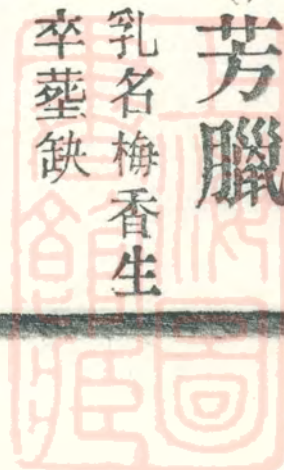 芳臘
乳名梅香生
卒塟缺